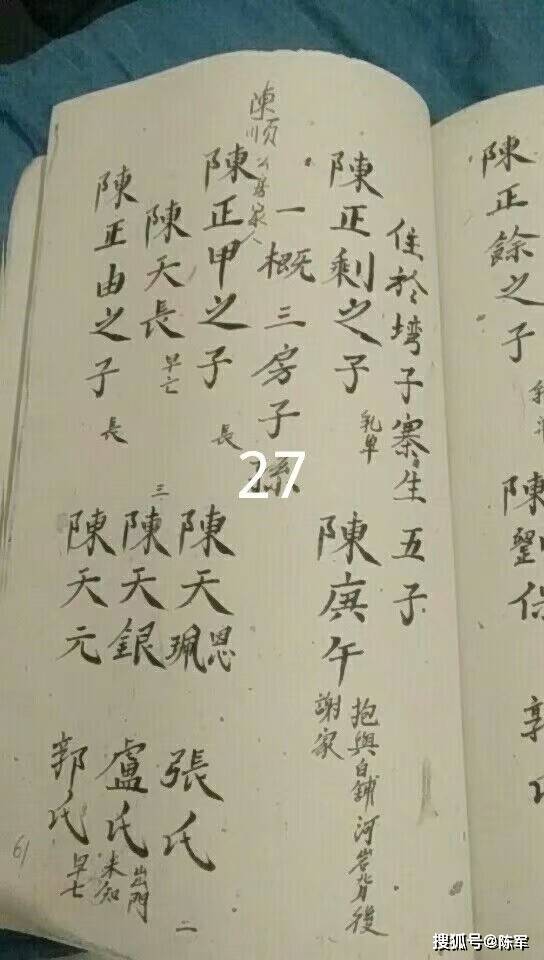 陳正餘之子
住於塆子寨生五子
陳正剩之子 乳单
陳庚午 抱與白鋪河岩背後
謝家
一概三房子孫
陳順公房家人
陳正甲之子 長
陳天珮恩 張氏 二
陳天長 早亡
三 陳天銀 盧氏 出門
未知
陳正由之子 長
陳天元 郭氏 早亡
61
27
搜狐号@陈军